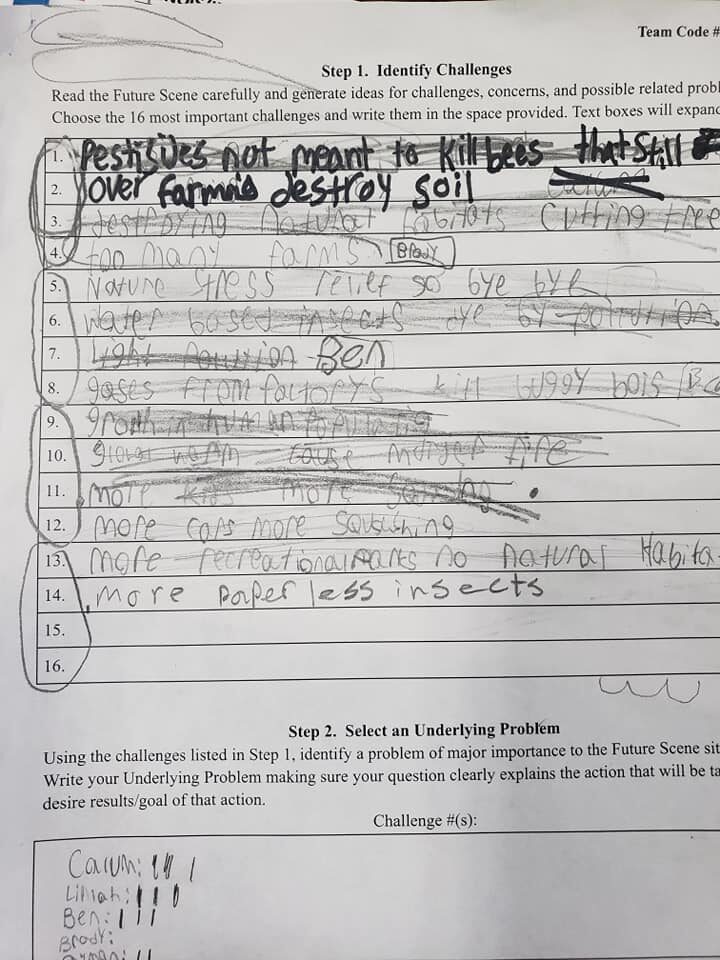 Team Code #
Step 1. Identify Challenges
Read the Future Scene carefully and generate ideas for challenges, concerns, and possible related probl
Choose the 16 most important challenges and write them in the space provided. Text boxes will expand
1. Pestisides not meant to Kill bees that still
2. over farming destroy soil
3. destroying natural habitats cutting tree
4. too many farms Brody
5. Nature stress relief so bye bye
6. Water based insects dye by pollution
7. Light Pollution Ben
8. gases from factory's kill buggy bois
9. in human
10. cause
11. more kids more
12. more cars more squshing
13. more recreational parks no natural Habita
14. more paper less insects
15.
16.
Step 2. Select an Underlying Problem
Using the challenges listed in Step 1, identify a problem of major importance to the Future Scene sit
Write your Underlying Problem making sure your question clearly explains the action that will be ta
desire results/goal of that action.
Challenge #(s):
Ben:
Brody: